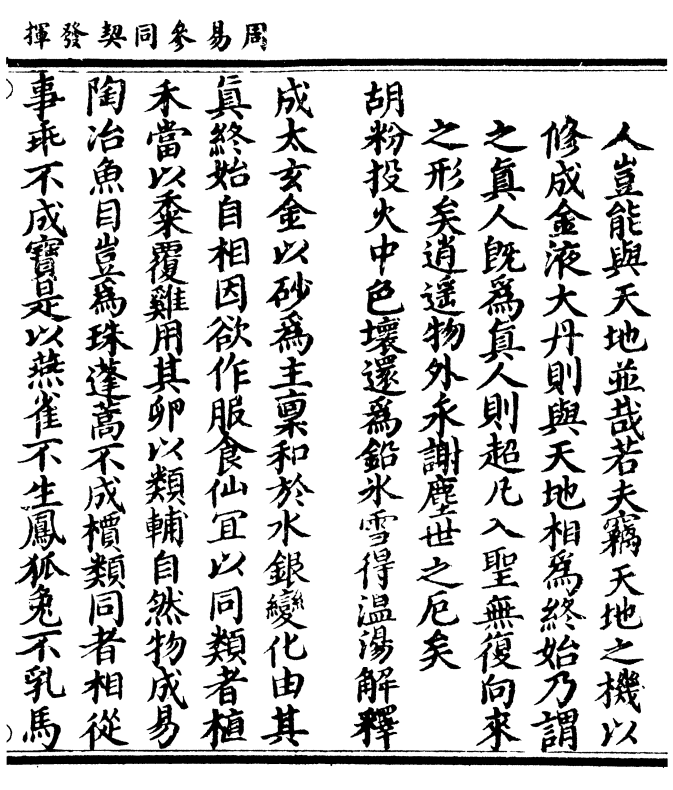 周易參同契發揮
人豈能與天地並哉若夫竊天地之機以
修成金液大丹則與天地相爲終始乃謂
之眞人旣爲眞人則超凡入聖無復向來
之形矣逍遥物外永謝塵世之厄矣
胡粉投火中色壞還爲鉛氷雪得温湯解釋
成太玄金以砂爲主稟和於水銀變化由其
眞終始自相因欲作服食仙冝以同類者植
禾當以黍覆雞用其卵以類輔自然物成易
陶冶魚目豈爲珠蓬蒿不成檟類同者相從
事乖不成寶是以燕雀不生鳳狐兔不乳馬